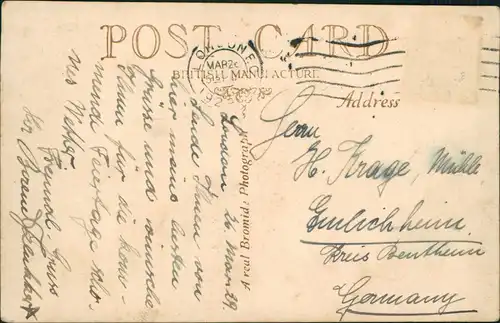 POST CARD
BRITISH MANUFACTURE
LONDON E
MAR 26
Address
A real Bromide Photograph
London 26 März 29.
Sende Ihnen von
hier meine besten
Grüße und wünsche
Ihnen für die kom-
mende Feiertage schö-
nes Wetter
Freundl. Gruss
Ihr
Herrn
H. Krage, Mühle
Emlichheim
Kreis Bentheim
Germany